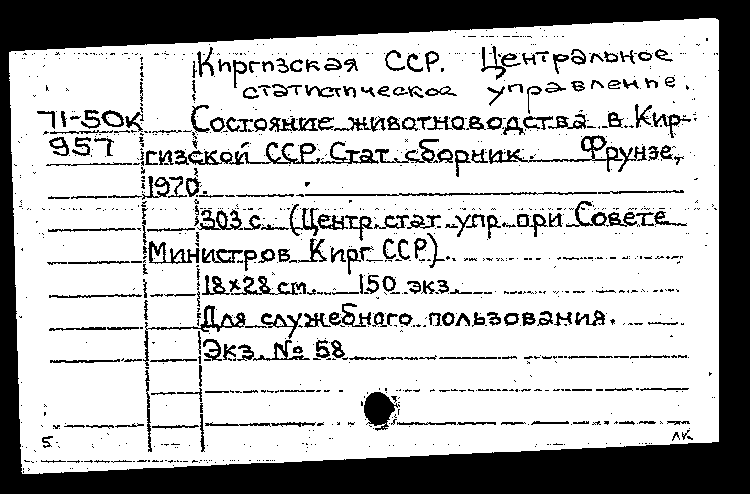 Киргизская ССР. Центральное
статистическое управление.
71-50к Состояние животноводства в Кир-
957 гизской ССР. Стат. сборник. Фрунзе,
1970.
303 с. (Центр. стат. упр. при Совете
Министров Кирг ССР).
18х28 cm. 150 экз.
Для служебного пользования.
Экз. № 58
5 лк